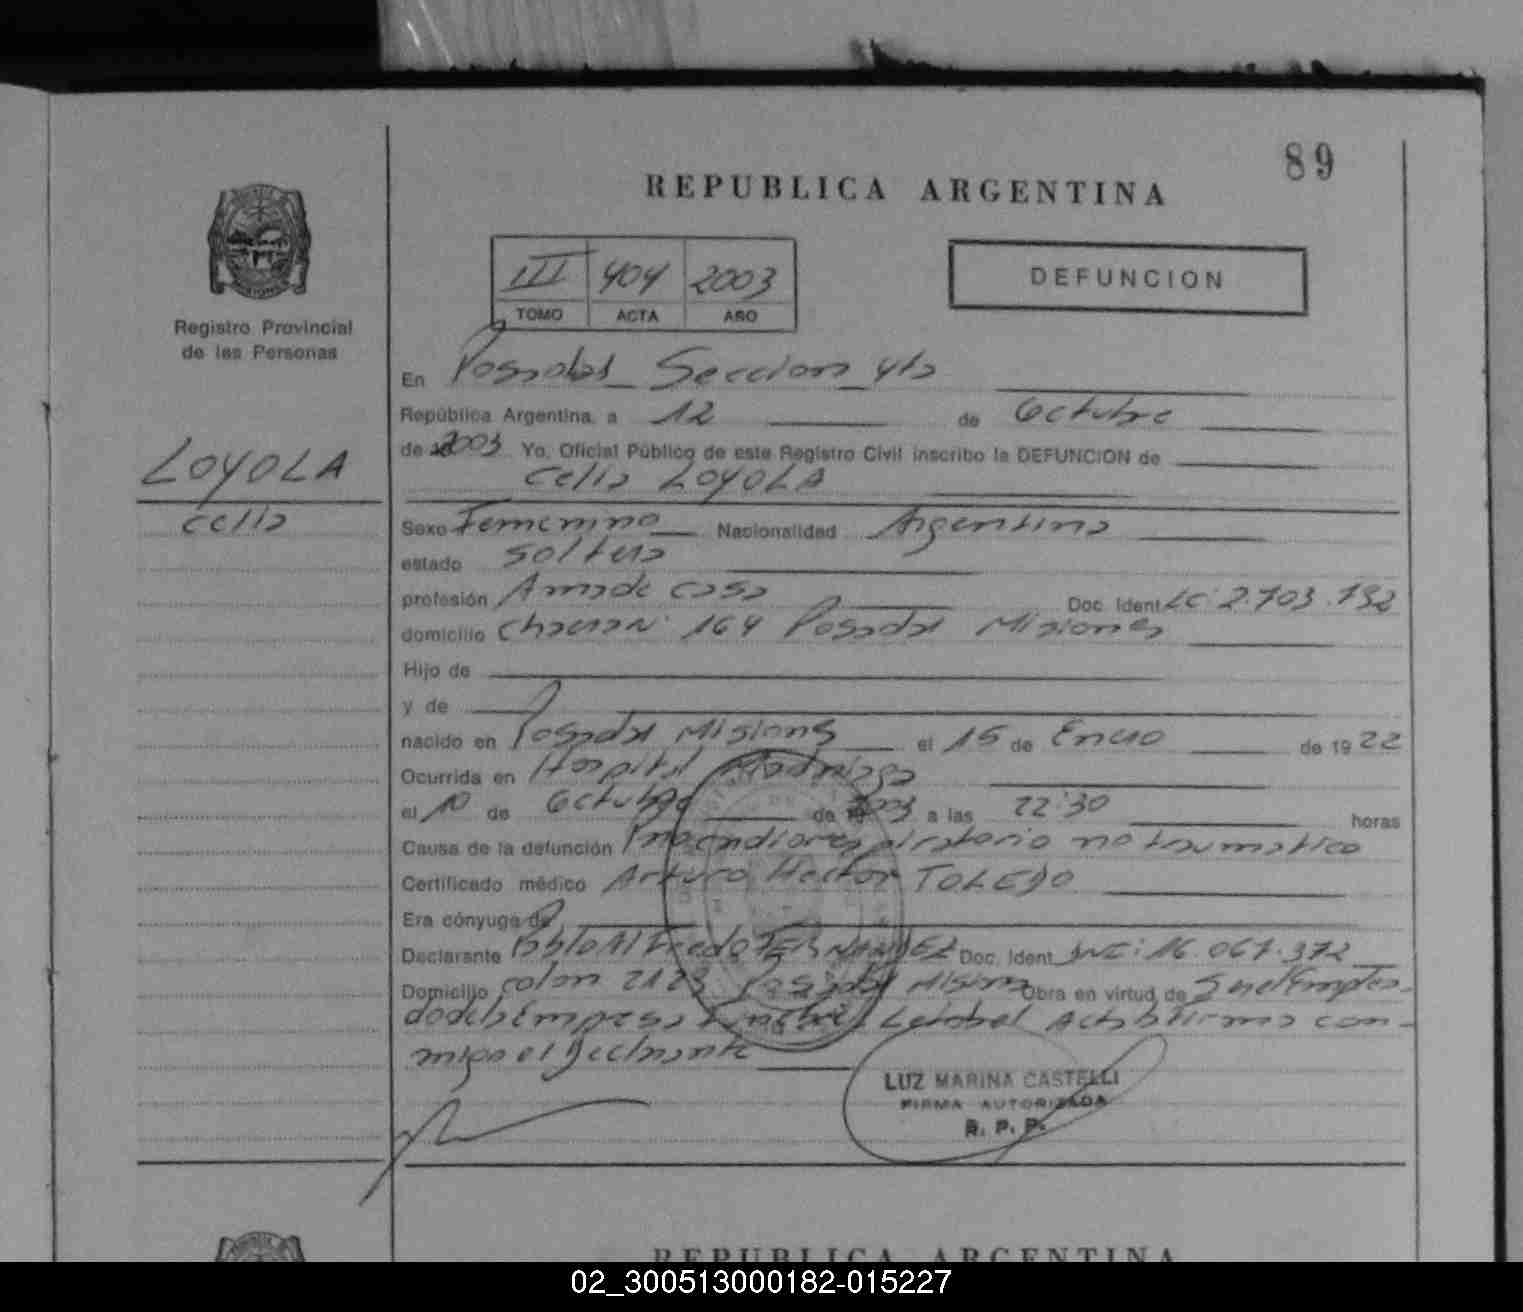 89
REPUBLICA ARGENTINA
III 404 2003
TOMO ACTA AÑO
DEFUNCION
Registro Provincial
de las Personas
LOYOLA
Celia
En Posadas Seccion 4ta
República Argentina, a 12 de Octubre
de 2003 Yo, Oficial Público de este Registro Civil inscribo la DEFUNCION de
Celia LOYOLA
Sexo Femenino Nacionalidad Argentina
estado Soltera
profesión Ama de casa Doc. Ident. LC: 2.703.732
domicilio Chacra Nº 164 Posadas Misiones
Hijo de
y de
nacido en Posadas Misiones el 15 de Enero de 1922
Ocurrida en Hospital Madariaga
el 10 de Octubre de 2003 a las 22:30 horas
Causa de la defunción no traumatico
Certificado médico Arturo Hector TOLEDO
Era cónyuge de
Declarante Pablo Alfredo FERNANDEZ Doc. Ident. DNI: 16.067.372
Domicilio Colon 2123 Posadas Misiones Obra en virtud de Ser el Emplea-
do de la Empresa Leida el Acta la firma con-
migo el Declarante
LUZ MARINA CASTELLI
FIRMA AUTORIZADA
R. P. P.
REPUBLICA ARGENTINA
02_300513000182-015227